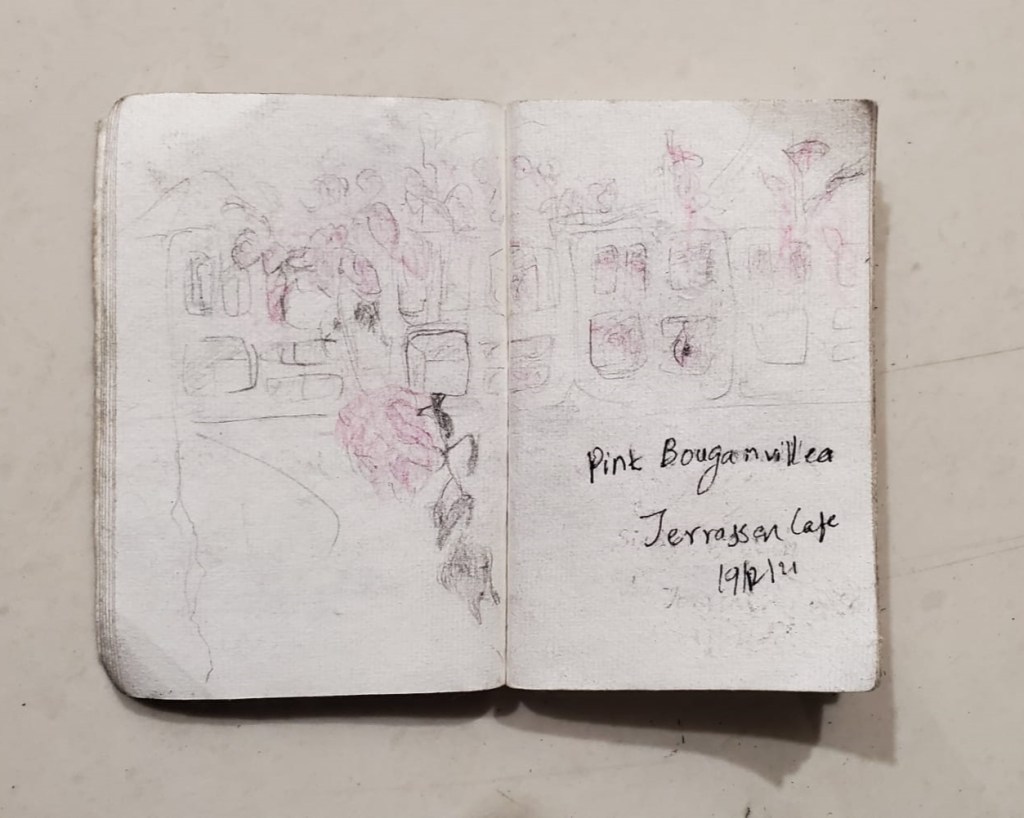 Pink Bouganvillea
Terrassen Cafe
19/12/21